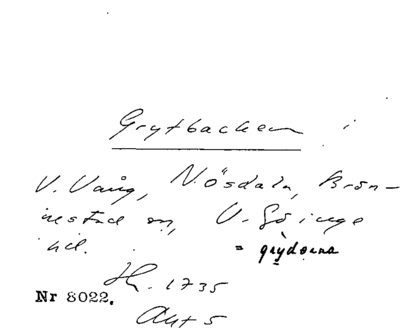 Grytbacken i
V. Vång, Nösdala, Brön-
nestad sn, V. Göinge
hd. = grydorna
Hk. 1735
Nr 8022.
Akt 5